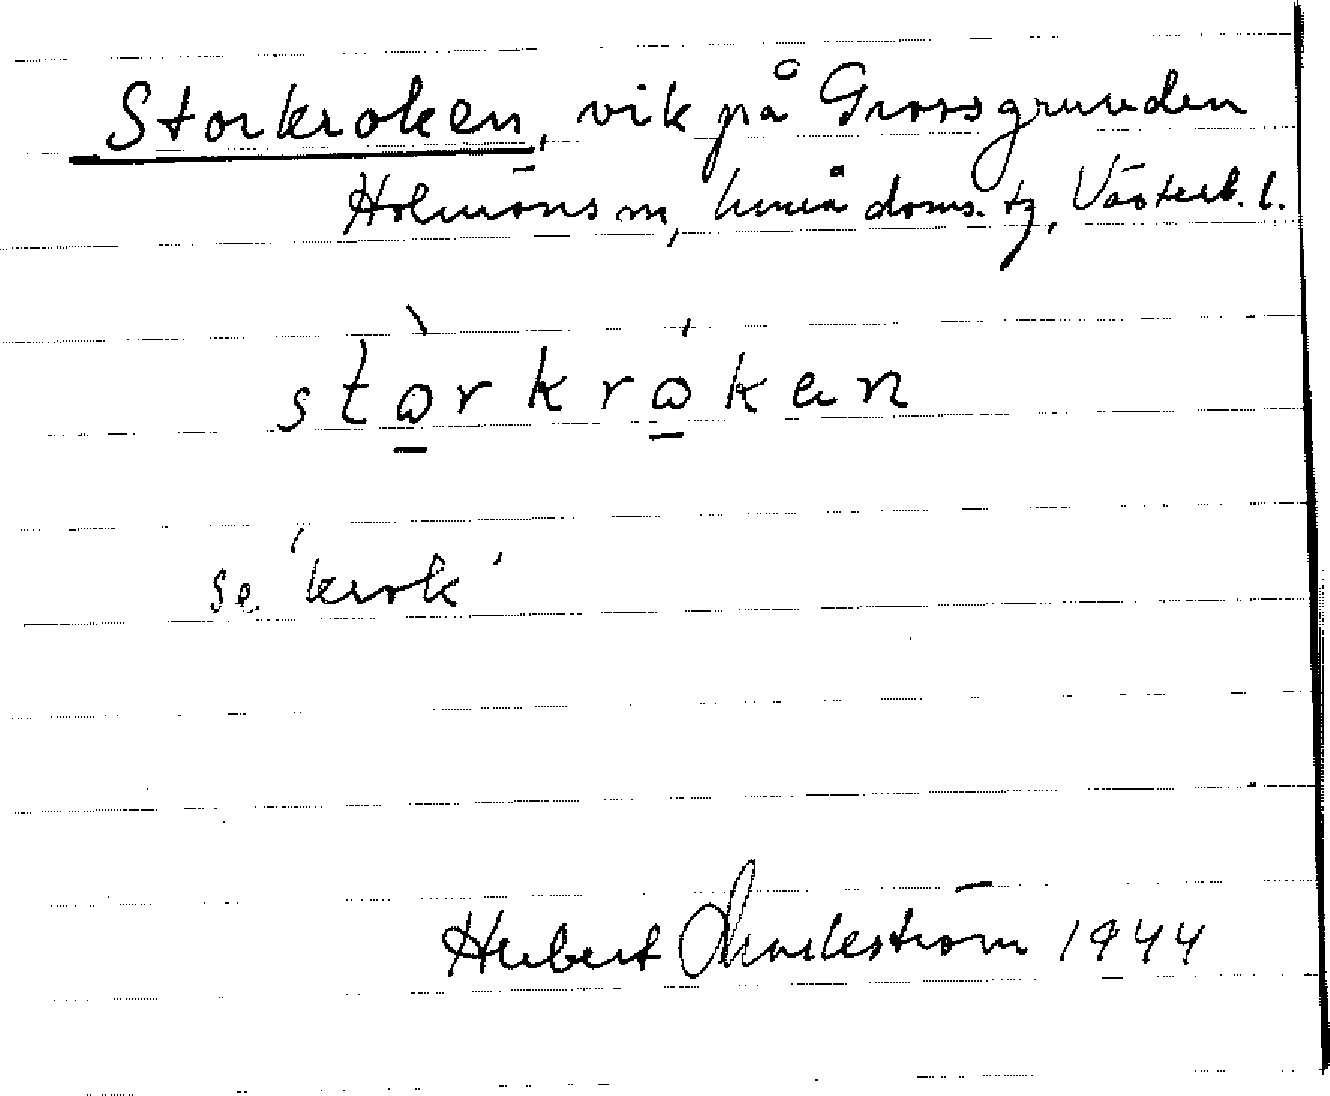 Storkroken, vik på Grossgrunden
Holmöns sn, Umeå doms. tg, Västerb. l.
stòrkrókən
se 'krok'
Herbert Markström 1944